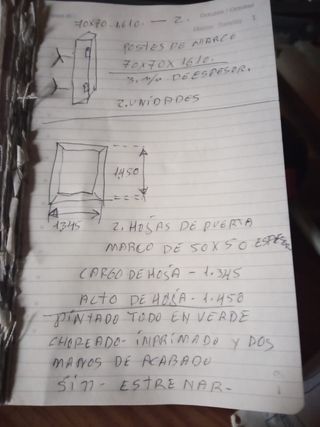 70X70.1610. — 2.
POSTES DE MARCO
70X70X1610.
3. M/M DE ESPESOR.
2. UNIDADES
1.450
1345
2. HOJAS DE PUERTA
MARCO DE 50X50
CARGO DE HOJA - 1.345
ALTO DE HOJA - 1.450
PINTADO TODO EN VERDE
CHOREADO - IMPRIMADO Y DOS
MANOS DE ACABADO
SIN - ESTRENAR.